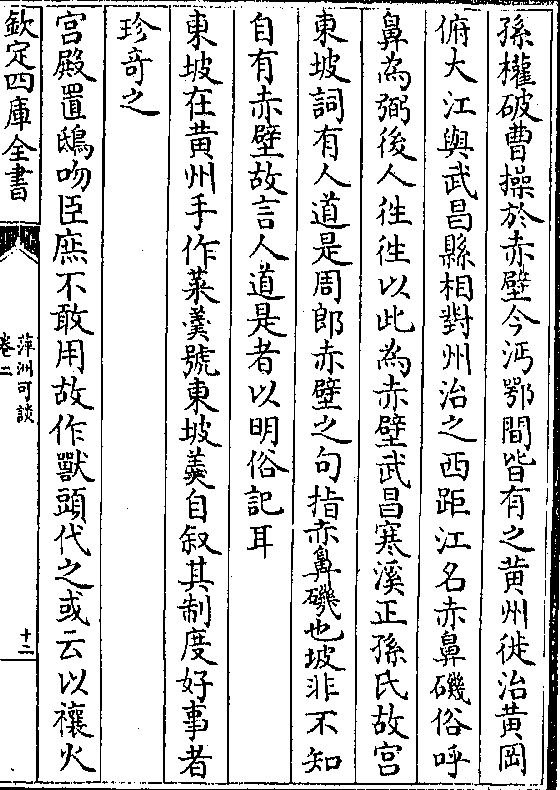 孫權破曹操於赤壁今沔鄂間皆有之黄州徙治黄岡
俯大江與武昌縣相對州治之西距江名赤鼻磯俗呼
鼻為弼後人徃徃以此為赤壁武昌寒溪正孫氏故宫
東坡詞有人道是周郎赤壁之句指赤鼻磯也坡非不知
自有赤壁故言人道是者以明俗記耳
東坡在黄州手作菜羮號東坡羮自叙其制度好事者
珍竒之
宫殿置鴟吻臣庶不敢用故作獸頭代之或云以禳火
欽定四庫全書
萍洲可談
卷二
十二